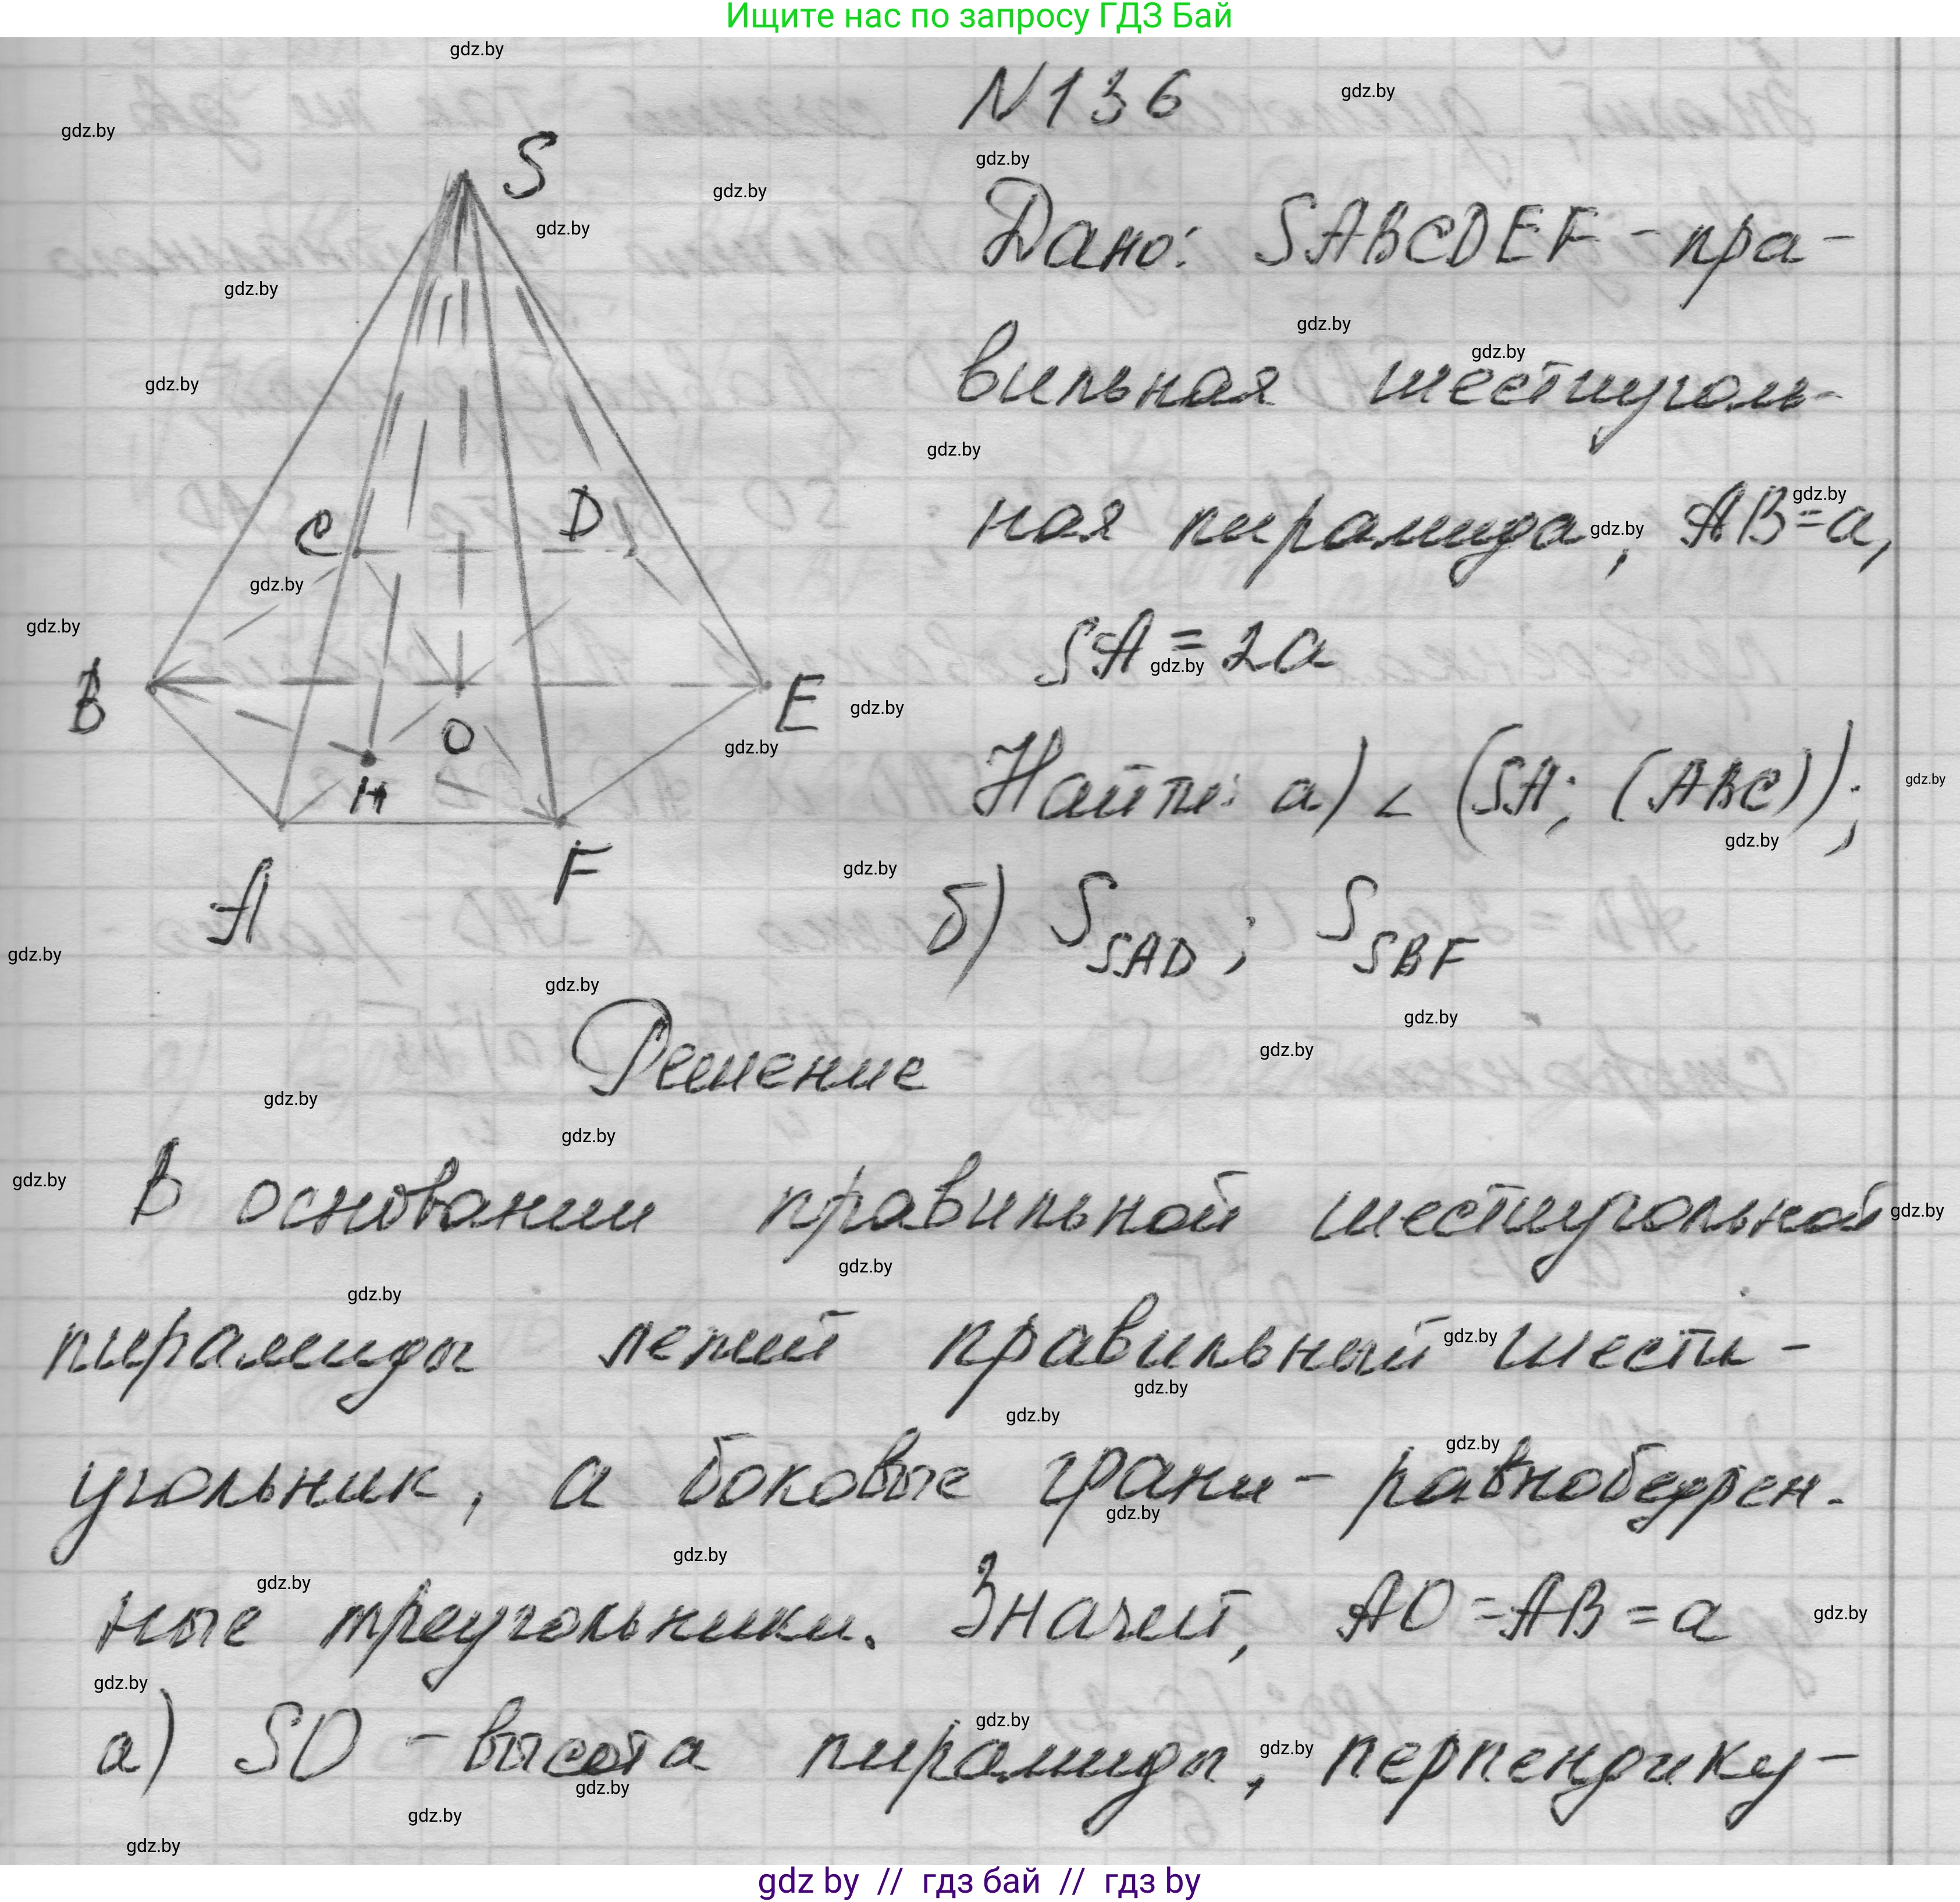 Ищите нас по запросу ГДЗ Бай
N136
S
Дано: SABCDEF - пра-
вильная шестиуголь-
ная пирамида, AB=a,
C D
SA=2a
B O E
H
Найти: а) ∠ (SA; (ABC));
A F
б) S SAD; S SBF
Решение
В основании правильной шестиугольной
пирамиды лежит правильный шести-
угольник, а боковые грани - равнобедрен.
ные треугольники. Значит, AO=AB=a
а) SO - высота пирамиды, перпендику-
gdz by // гдз бай // гдз by